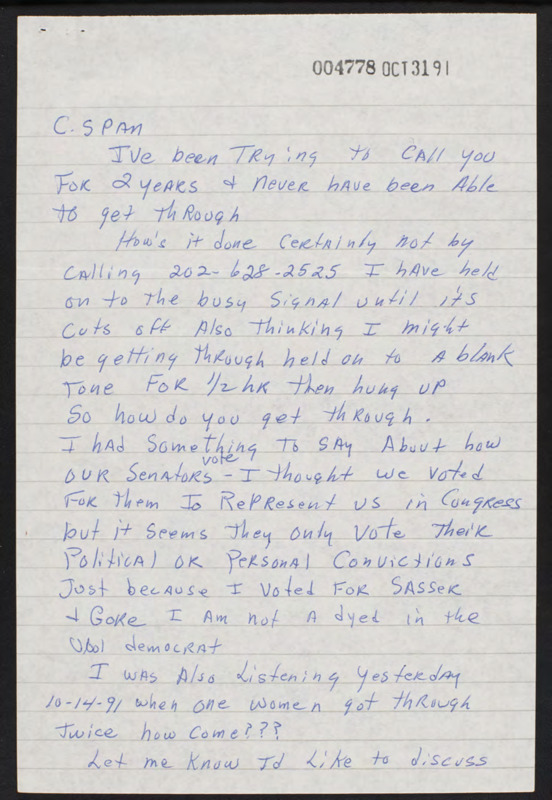 004778 OCT 31 91
C. SPAN
I've been Trying to CAll you
For 2 yeARs & never hAve been Able
to get thRough
How's it done CertAinly not by
CAlling 202-628-2525 I hAve held
on to the busy Signal until its
Cuts off Also thinking I might
be getting thRough held on to A blank
Tone FoR 1/2 hR then hung up
So how do you get thRough.
I hAd Something To SAy About how
vote
OUR SenatoRs - I thought we voted
FoR them To RePResent us in Congress
but it Seems They only Vote TheiR
PoliticAl oR PeRsonAl Convictions
Just because I Voted FoR SASSeR
& GoRe I Am not A dyed in the
Wool democRAt
I wAs Also Listening yesteRdAy
10-14-91 when one women got thRough
Twice how Come???
Let me Know I'd Like to discuss